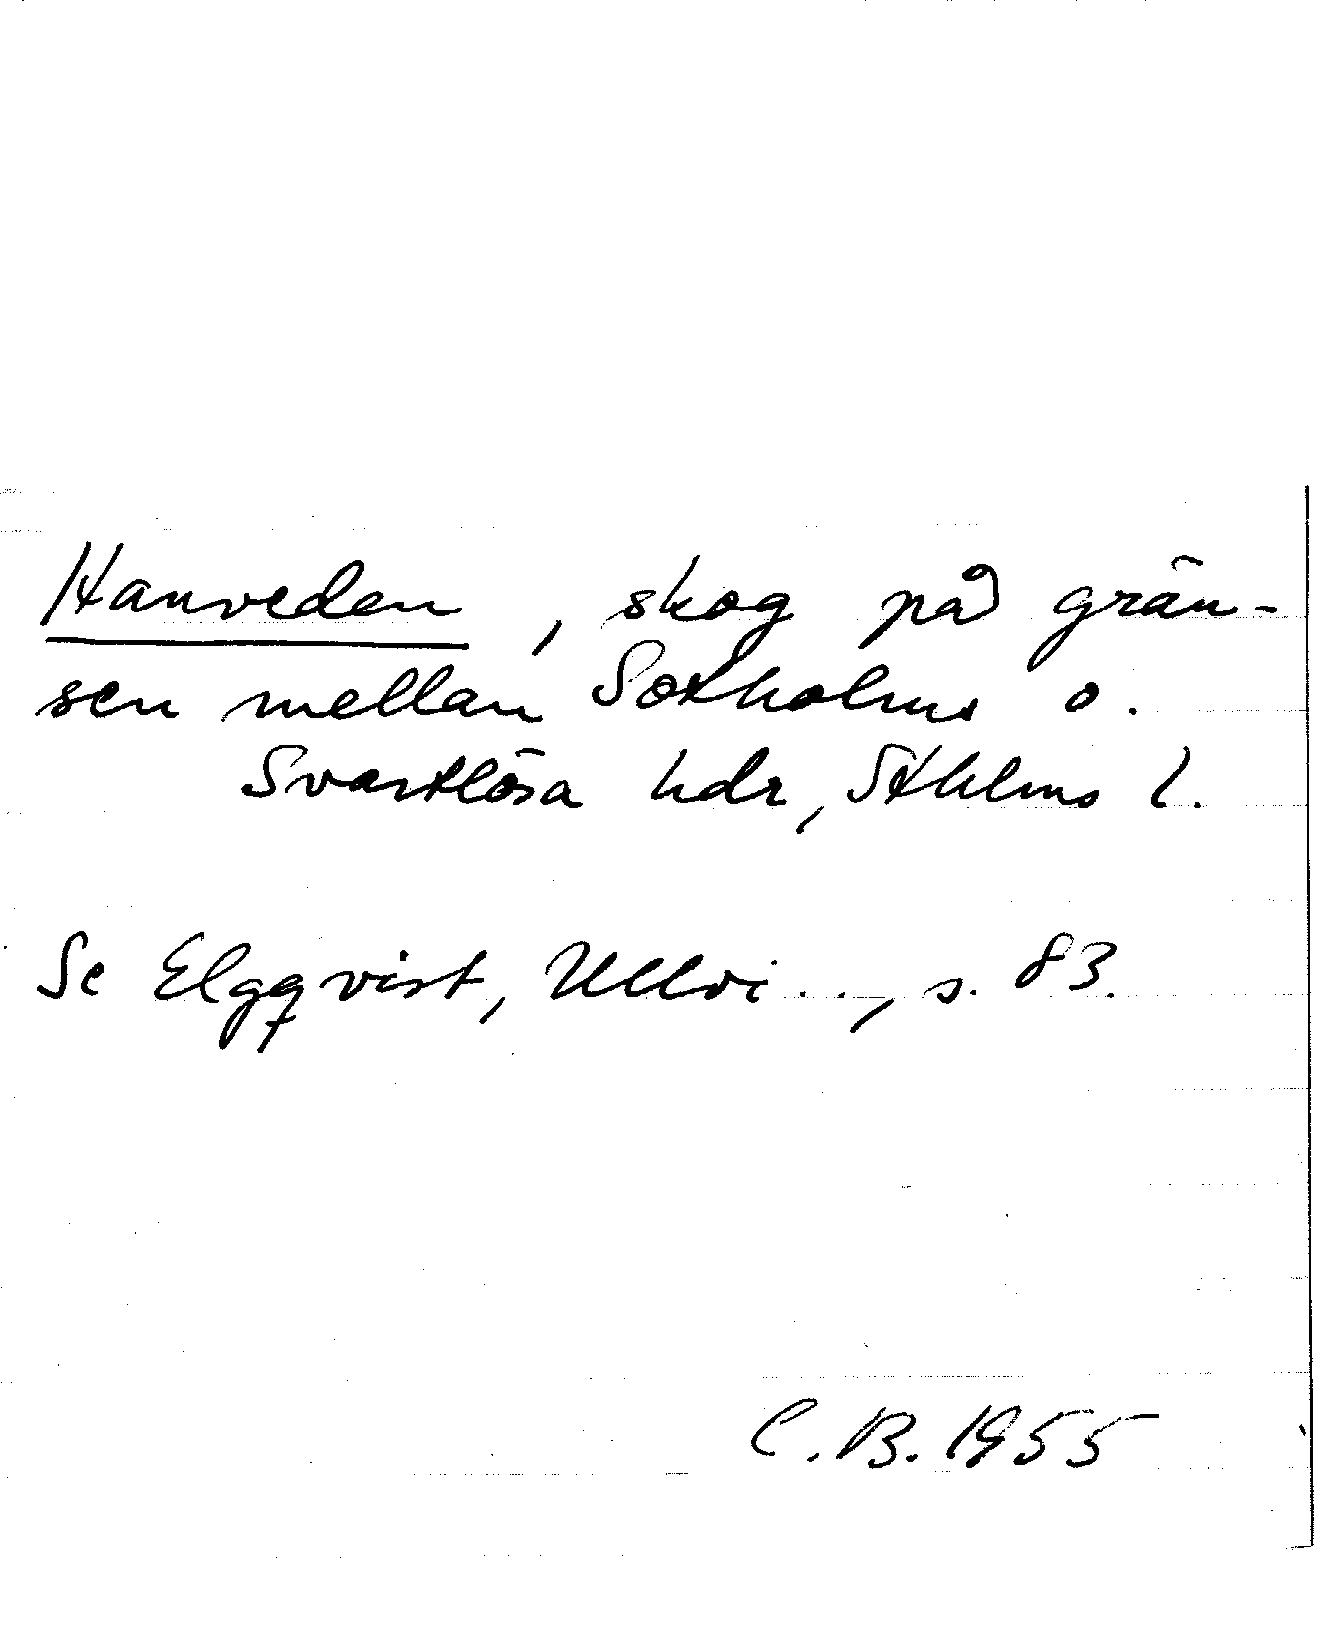 Hanveden, skog på grän-
sen mellan Sotholms o.
Svartlösa hdr, Sthlms l.
Se Elgqvist, Ullvi..., s. 83.
C.B. 1955